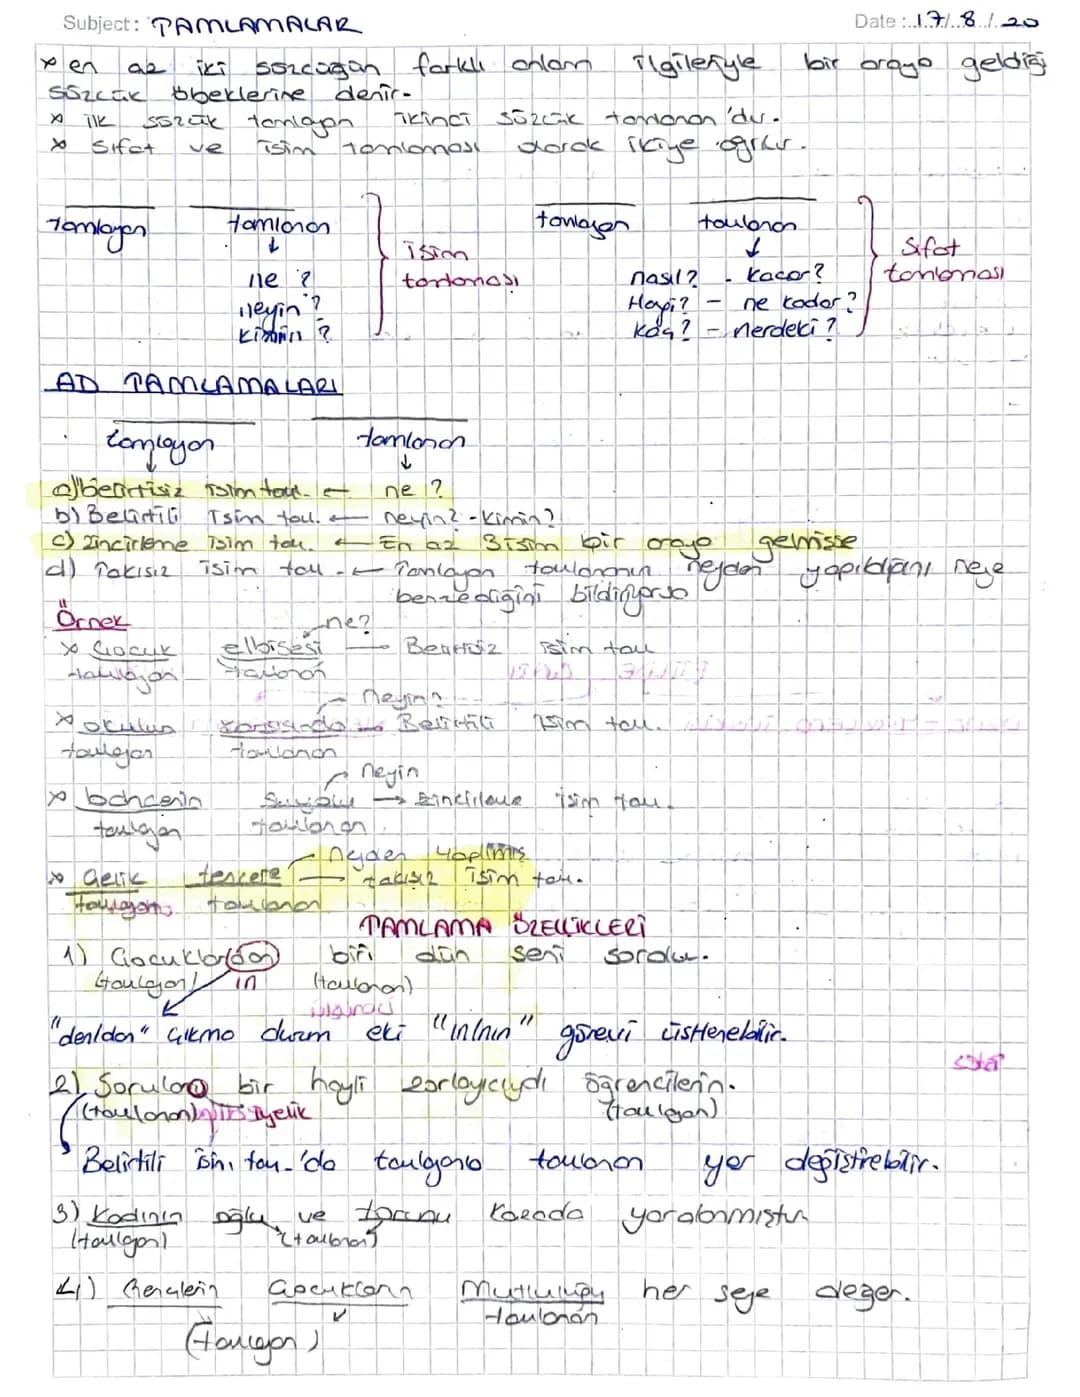 Subject: TAMLAMALAR
Date: 17/8/20
x en az iki sözcüğün farklı anlam ilgileriyle bir araya geldiği
sözcük öbeklerine denir.
x ilk sözcük tamlayan ikinci sözcük tamlanan'dır.
x Sıfat ve isim tamlaması olarak ikiye ayrılır.
tamlayan tamlanan
ne ?
neyin ?
kimin ?
isim tamlaması
tamlayan tamlanan
nasıl? - kaçar?
Hangi? - ne kadar?
kaç? - nerdeki?
Sıfat tamlaması
AD TAMLAMALARI
tamlayan tamlanan
a) belirtisiz isim tam. ← ne ?
b) Belirtili isim tam. ← neyin? - kimin?
c) zincirleme isim tam. ← En az 3 isim bir araya gelmişse
d) Takısız isim tam. ← Tamlayan tamlananın neyden yapıldığını neye
benzediğini bildiriyorsa
Örnek
ne?
x Çocuk elbisesi → Belirtisiz isim tam
tamlayan tamlanan
Neyin?
x okulun karşısında → Belirtili isim tam.
tamlayan tamlanan
neyin
x bahçenin → zincirleme isim tam.
tamlayan tamlanan
Neyden yapılmış
x Çelik tencere → takısız isim tam.
tamlayan tamlanan
TAMLAMA ÖZELLİKLERİ
1) Çocuklar(dan) biri dün seni sordu.
(tamlayan) in (tamlanan)
ilgi eki
"den/dan" çıkma durum eki "in/nin" görevi üstlenebilir.
2) Soruları bir hayli zorlayıcıydı öğrencilerin.
(tamlanan) iyelik (tamlayan)
Belirtili isim tam.'da tamlayanla tamlanan yer değiştirebilir.
3) Kadının oğlu ve torunu kazada yaralanmıştır
(tamlayan) (tamlanan)
4) Gençlerin çocukların Mutluluğu her şeye değer.
tamlanan
(tamlayan)